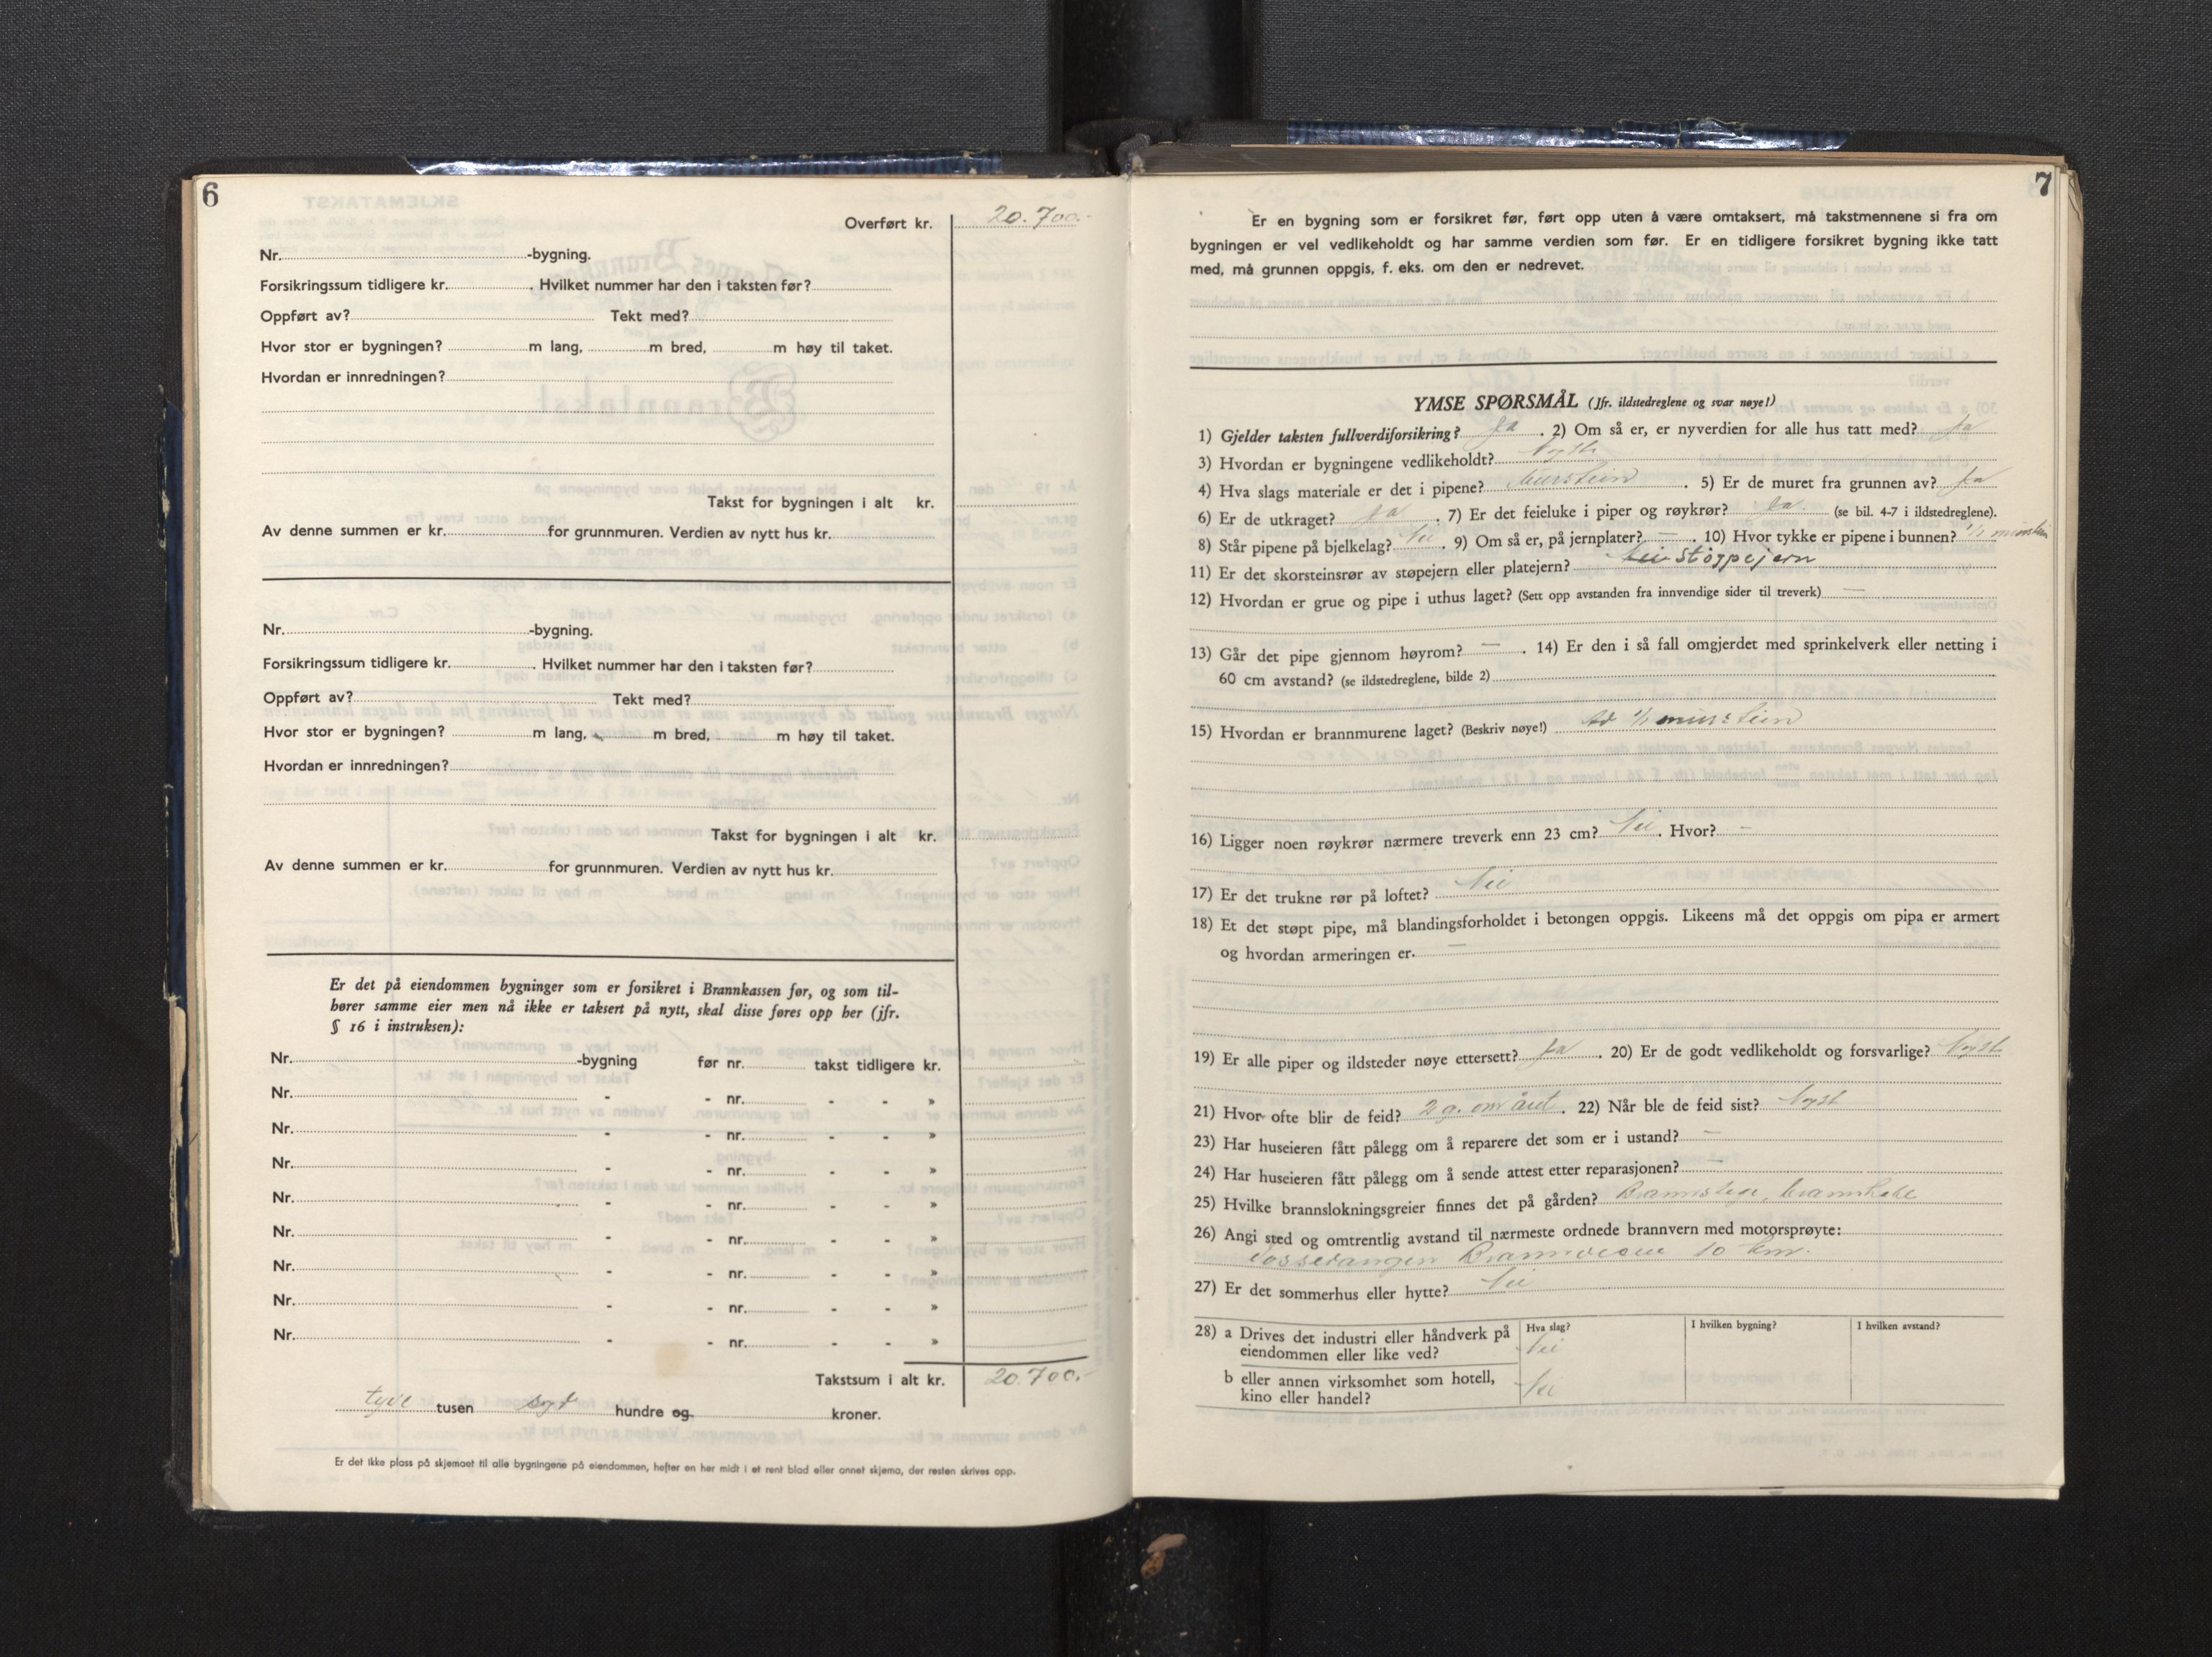 6
Overført kr. 20.700.-
Nr. -bygning.
Forsikringssum tidligere kr. . Hvilket nummer har den i taksten før?
Oppført av? Tekt med?
Hvor stor er bygningen? m lang, m bred, m høy til taket.
Hvordan er innredningen?
Takst for bygningen i alt kr.
Av denne summen er kr. for grunnmuren. Verdien av nytt hus kr.
Nr. -bygning.
Forsikringssum tidligere kr. . Hvilket nummer har den i taksten før?
Oppført av? Tekt med?
Hvor stor er bygningen? m lang, m bred, m høy til taket.
Hvordan er innredningen?
Takst for bygningen i alt kr.
Av denne summen er kr. for grunnmuren. Verdien av nytt hus kr.
Er det på eiendommen bygninger som er forsikret i Brannkassen før, og som til-
hører samme eier men nå ikke er taksert på nytt, skal disse føres opp her (jfr.
§ 16 i instruksen):
Nr. -bygning før nr. takst tidligere kr.
Nr. - - nr. - - »
Nr. - - nr. - - »
Nr. - - nr. - - »
Nr. - - nr. - - »
Nr. - - nr. - - »
Nr. - - nr. - - »
Nr. - - nr. - - »
Nr. - - nr. - - »
Takstsum i alt kr. 20.700.-
tyve tusen syv hundre og kroner.
Er det ikke plass på skjemaet til alle bygningene på eiendommen, hefter en her midt i et rent blad eller annet skjema, der resten skrives opp.
7
Er en bygning som er forsikret før, ført opp uten å være omtaksert, må takstmennene si fra om
bygningen er vel vedlikeholdt og har samme verdien som før. Er en tidligere forsikret bygning ikke tatt
med, må grunnen oppgis, f. eks. om den er nedrevet.
YMSE SPØRSMÅL (Jfr. ildstedreglene og svar nøye!)
1) Gjelder taksten fullverdiforsikring? Ja . 2) Om så er, er nyverdien for alle hus tatt med? Ja
3) Hvordan er bygningene vedlikeholdt? Nytt
4) Hva slags materiale er det i pipene? Murstein . 5) Er de muret fra grunnen av? Ja
6) Er de utkraget? Ja . 7) Er det feieluke i piper og røykrør? Ja. (se bil. 4-7 i ildstedreglene).
8) Står pipene på bjelkelag? Nei . 9) Om så er, på jernplater? — . 10) Hvor tykke er pipene i bunnen? 1/1 murstein
11) Er det skorsteinsrør av støpejern eller platejern? Nei Støypejern
12) Hvordan er grue og pipe i uthus laget? (Sett opp avstanden fra innvendige sider til treverk) —
13) Går det pipe gjennom høyrom? — . 14) Er den i så fall omgjerdet med sprinkelverk eller netting i
60 cm avstand? (se ildstedreglene, bilde 2)
15) Hvordan er brannmurene laget? (Beskriv nøye!) Av 1/1 murstein
16) Ligger noen røykrør nærmere treverk enn 23 cm? Nei . Hvor? —
17) Er det trukne rør på loftet? Nei
18) Et det støpt pipe, må blandingsforholdet i betongen oppgis. Likeens må det oppgis om pipa er armert
og hvordan armeringen er. —
19) Er alle piper og ildsteder nøye ettersett? Ja . 20) Er de godt vedlikeholdt og forsvarlige? Nytt
21) Hvor ofte blir de feid? 2 g. om året . 22) Når ble de feid sist? Nytt
23) Har huseieren fått pålegg om å reparere det som er i ustand? —
24) Har huseieren fått pålegg om å sende attest etter reparasjonen? —
25) Hvilke brannslokningsgreier finnes det på gården? Brannstige, brannhake
26) Angi sted og omtrentlig avstand til nærmeste ordnede brannvern med motorsprøyte:
Vossevangen Brannvesen 10 km.
27) Er det sommerhus eller hytte? Nei
28) a Drives det industri eller håndverk på eiendommen eller like ved? Hva slag? Nei I hvilken bygning? I hvilken avstand?
b eller annen virksomhet som hotell, kino eller handel? Nei